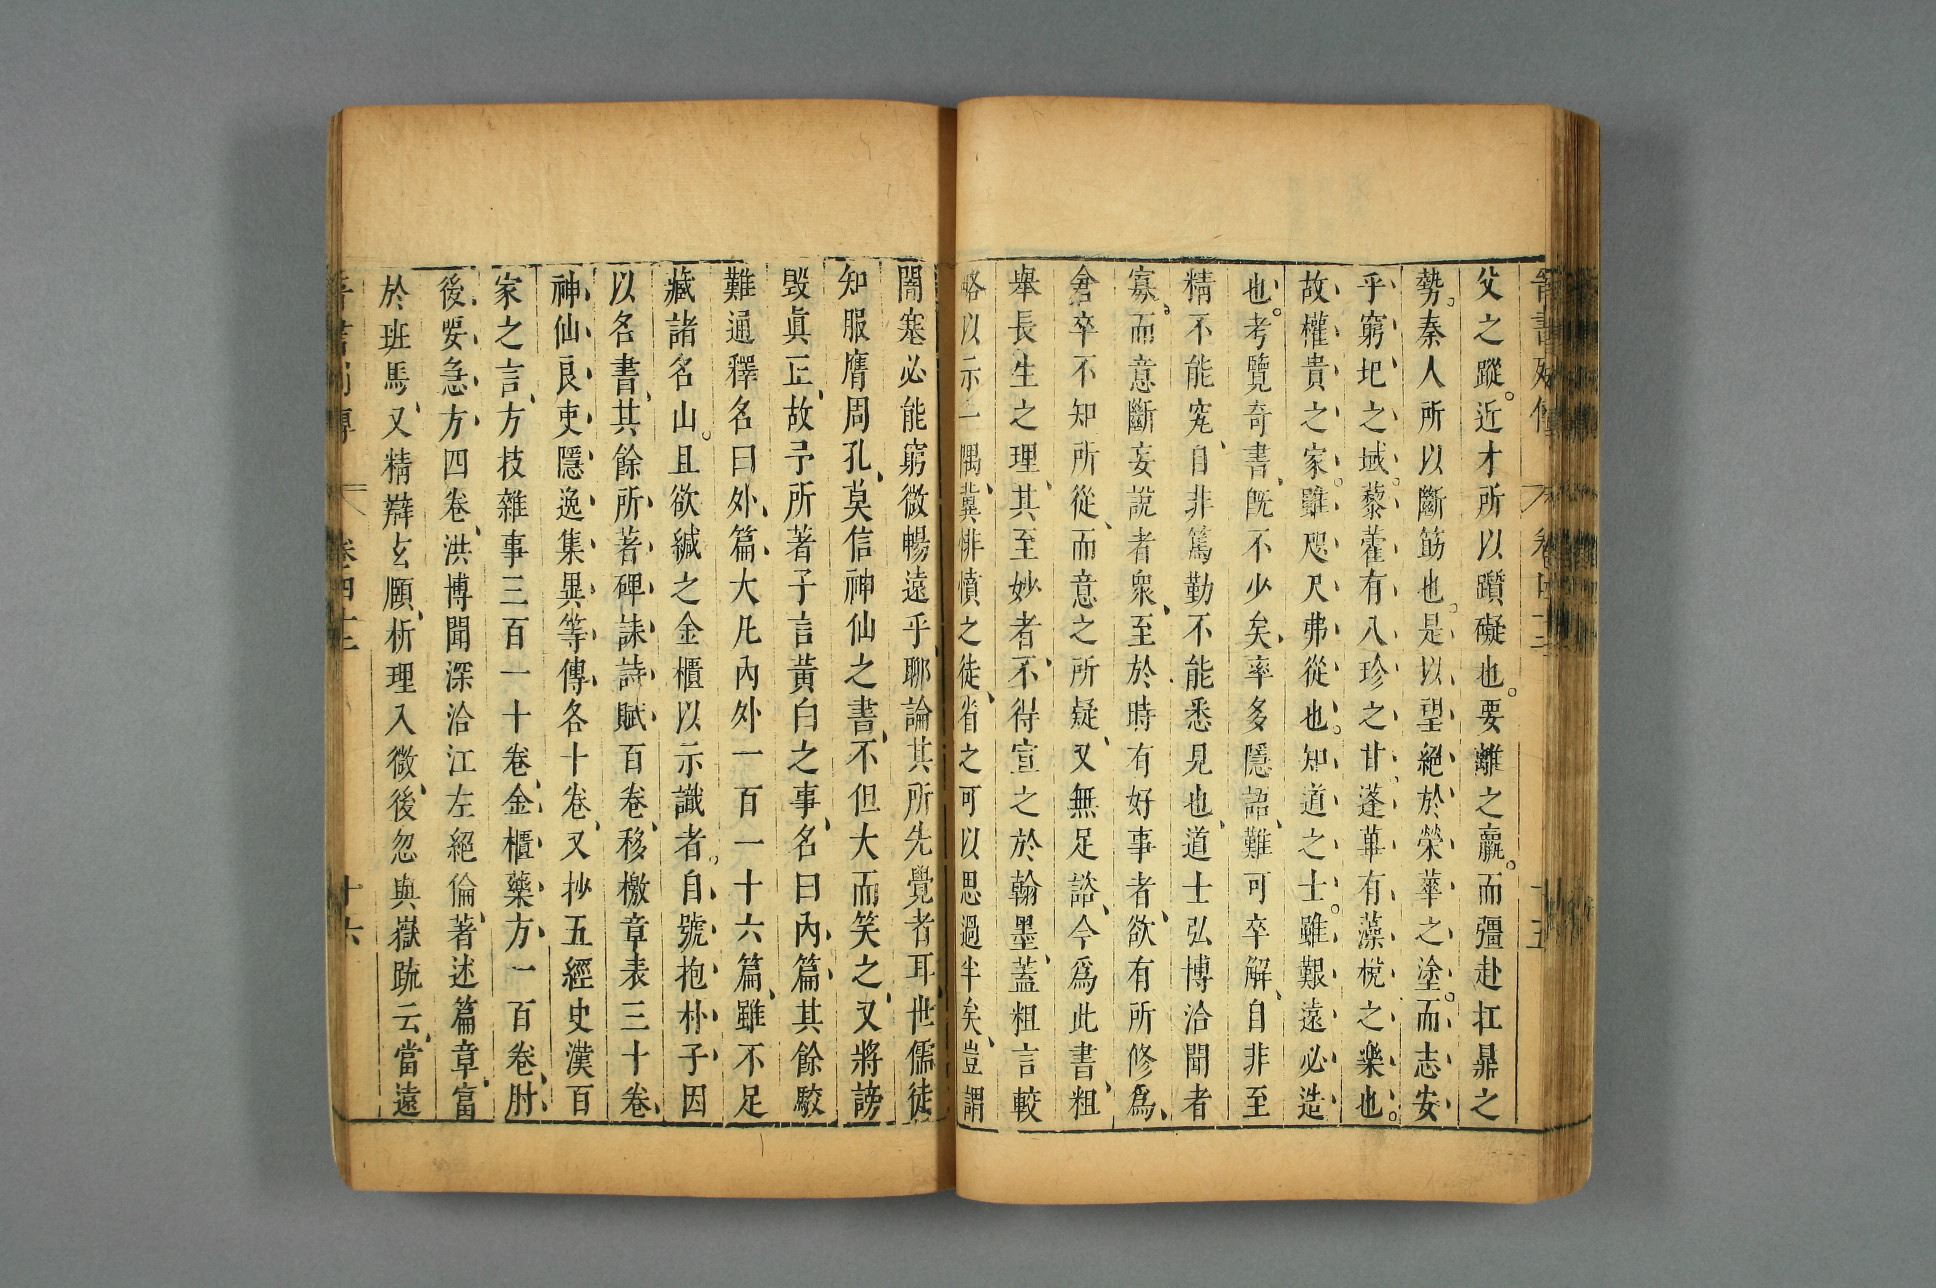 父之蹤。近才所以躓礙也。要離之羸。而彊赴扛鼎之
勢。秦人所以斷筋也。是以望絕於榮華之塗。而志安
乎窮圯之域。藜藿有八珍之甘、蓬蓽有藻梲之樂也。
故權貴之家。雖咫尺弗從也。知道之士。雖艱遠必造
也。考覽奇書、旣不少矣、率多隱語、難可卒解、自非至
精不能究、自非篤勤不能悉見也、道士弘博洽聞者
寡。而意斷妄說者衆、至於時有好事者、欲有所修爲、
倉卒不知所從、而意之所疑、又無足諮、今爲此書、粗
舉長生之理、其至妙者、不得宣之於翰墨、蓋粗言較
略以示一隅、冀悱憤之徒、省之可以思過半矣、豈謂
闇塞必能窮微暢遠乎、聊論其所先覺者耳、世儒徒
知服膺周孔、莫信神仙之書、不但大而笑之、又將謗
毁眞正、故予所著子言黃白之事、名曰內篇、其餘駮
難通釋、名曰外篇、大凡內外一百一十六篇、雖不足
藏諸名山。且欲緘之金櫃以示識者。自號抱朴子因
以名書、其餘所著碑誄詩賦百卷、移檄章表三十卷、
神仙良吏隱逸集異等傳各十卷、又抄五經史漢百
家之言、方技雜事三百一十卷、金櫃藥方一百卷、肘
後要急方四卷、洪博聞深洽江左絕倫、著述篇章、富
於班馬、又精辯玄賾、析理入微、後忽與嶽疏云、當遠
卷四十三
十六